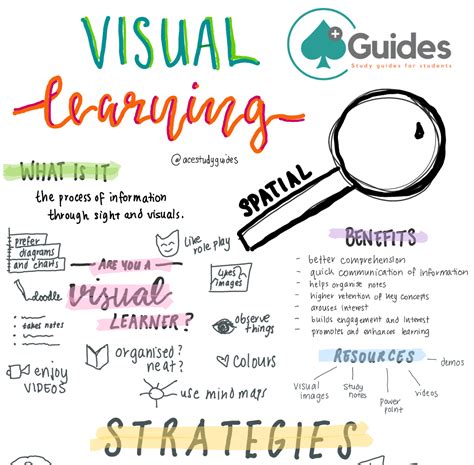 VISUAL
Guides
Study guides for students
learning
@acestudyguides
WHAT IS IT
the process of information
through sight and visuals.
SPATIAL
prefer
diagrams
and charts
like
role play
ARE YOU A
likes
images
doodle
visual
LEARNER?
takes notes
observe
things
organised?
neat?
colours
enjoy
VIDEOS
use mind maps
BENEFITS
- better comprehension
- quick communication of information
- helps organise notes
- higher retention of key concepts
- arouses interest
- builds engagement and interest
- promotes and enhances learning
RESOURCES
demos
visual
images
study
notes
power
point
videos
STRATEGIES